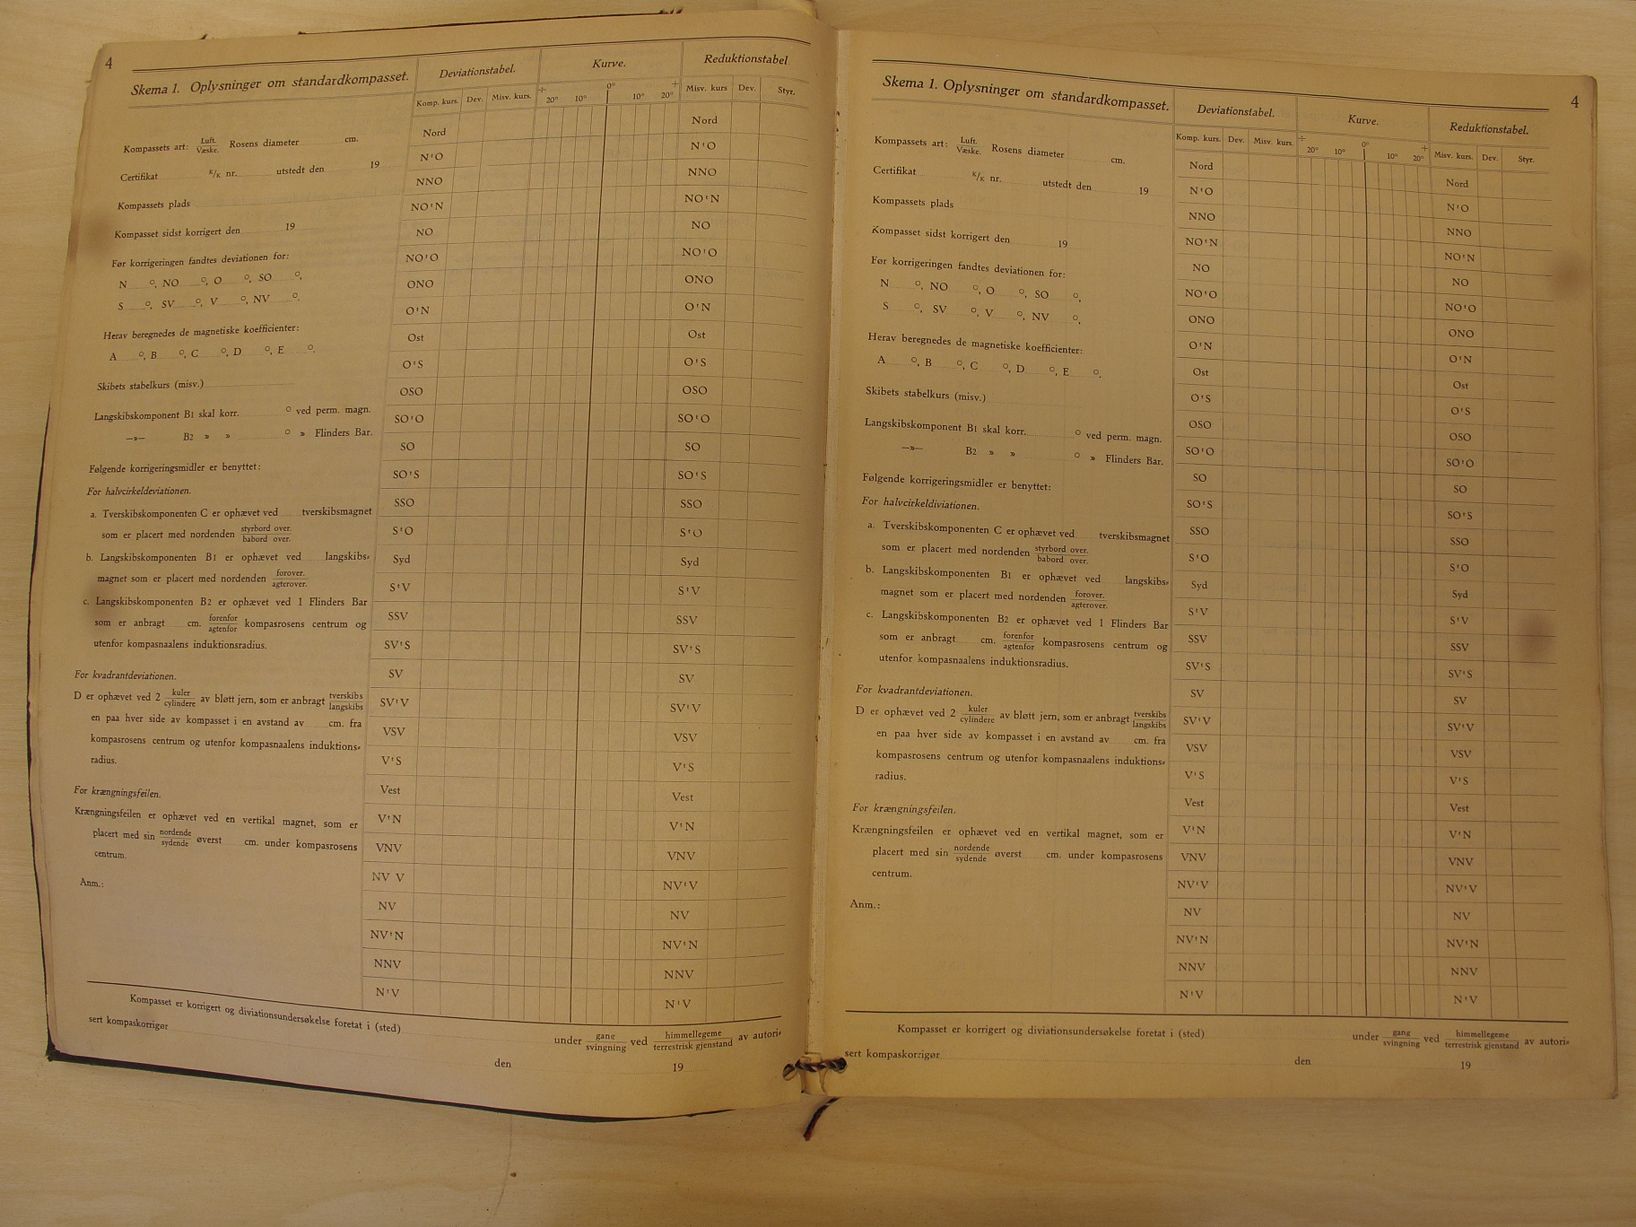 4
Skema 1. Oplysninger om standardkompasset.
Kompassets art: Luft. Væske. Rosens diameter cm.
Certifikat K/K nr. utstedt den 19
Kompassets plads
Kompasset sidst korrigert den 19
Før korrigeringen fandtes deviationen for:
N °, NO °, O °, SO °,
S °, SV °, V °, NV °.
Herav beregnedes de magnetiske koefficienter:
A °, B °, C °, D °, E °.
Skibets stabelkurs (misv.)
Langskibskomponent B1 skal korr. ° ved perm. magn.
—»— B2 » » ° » Flinders Bar.
Følgende korrigeringsmidler er benyttet:
For halvcirkeldeviationen.
a. Tverskibskomponenten C er ophævet ved tverskibsmagnet
som er placert med nordenden styrbord over. babord over.
b. Langskibskomponenten B1 er ophævet ved langskibs-
magnet som er placert med nordenden forover. agterover.
c. Langskibskomponenten B2 er ophævet ved 1 Flinders Bar
som er anbragt cm. forenfor agtenfor kompasrosens centrum og
utenfor kompasnaalens induktionsradius.
For kvadrantdeviationen.
D er ophævet ved 2 kuler cylindere av bløtt jern, som er anbragt tverskibs langskibs
en paa hver side av kompasset i en avstand av cm. fra
kompasrosens centrum og utenfor kompasnaalens induktions-
radius.
For krængningsfeilen.
Krængningsfeilen er ophævet ved en vertikal magnet, som er
placert med sin nordende sydende øverst cm. under kompasrosens
centrum.
Anm.:
Deviationstabel. Kurve. Reduktionstabel
Komp. kurs. Dev. Misv. kurs. ÷ 20° 10° 0° 10° + 20° Misv. kurs Dev. Styr.
Nord Nord
N'O N'O
NNO NNO
NO'N NO'N
NO NO
NO'O NO'O
ONO ONO
O'N O'N
Ost Ost
O'S O'S
OSO OSO
SO'O SO'O
SO SO
SO'S SO'S
SSO SSO
S'O S'O
Syd Syd
S'V S'V
SSV SSV
SV'S SV'S
SV SV
SV'V SV'V
VSV VSV
V'S V'S
Vest Vest
V'N V'N
VNV VNV
NV V NV'V
NV NV
NV'N NV'N
NNV NNV
N'V N'V
Kompasset er korrigert og diviationsundersøkelse foretat i (sted) under gang svingning ved himmellegeme terrestrisk gjenstand av autori-
sert kompaskorrigør den 19
4
Skema 1. Oplysninger om standardkompasset.
Kompassets art: Luft. Væske. Rosens diameter cm.
Certifikat K/K nr. utstedt den 19
Kompassets plads
Kompasset sidst korrigert den 19
Før korrigeringen fandtes deviationen for:
N °, NO °, O °, SO °,
S °, SV °, V °, NV °.
Herav beregnedes de magnetiske koefficienter:
A °, B °, C °, D °, E °.
Skibets stabelkurs (misv.)
Langskibskomponent B1 skal korr. ° ved perm. magn.
—»— B2 » » ° » Flinders Bar.
Følgende korrigeringsmidler er benyttet:
For halvcirkeldiviationen.
a. Tverskibskomponenten C er ophævet ved tverskibsmagnet
som er placert med nordenden styrbord over. babord over.
b. Langskibskomponenten B1 er ophævet ved langskibs-
magnet som er placert med nordenden forover. agterover.
c. Langskibskomponenten B2 er ophævet ved 1 Flinders Bar
som er anbragt cm. forenfor agtenfor kompasrosens centrum og
utenfor kompasnaalens induktionsradius.
For kvadrantdeviationen.
D er ophævet ved 2 kuler cylindere av bløtt jern, som er anbragt tverskibs langskibs
en paa hver side av kompasset i en avstand av cm. fra
kompasrosens centrum og utenfor kompasnaalens induktions-
radius.
For krængningsfeilen.
Krængningsfeilen er ophævet ved en vertikal magnet, som er
placert med sin nordende sydende øverst cm. under kompasrosens
centrum.
Anm.:
Deviationstabel. Kurve. Reduktionstabel.
Komp. kurs. Dev. Misv. kurs. ÷ 20° 10° 0° 10° + 20° Misv. kurs. Dev. Styr.
Nord Nord
N'O N'O
NNO NNO
NO'N NO'N
NO NO
NO'O NO'O
ONO ONO
O'N O'N
Ost Ost
O'S O'S
OSO OSO
SO'O SO'O
SO SO
SO'S SO'S
SSO SSO
S'O S'O
Syd Syd
S'V S'V
SSV SSV
SV'S SV'S
SV SV
SV'V SV'V
VSV VSV
V'S V'S
Vest Vest
V'N V'N
VNV VNV
NV'V NV'V
NV NV
NV'N NV'N
NNV NNV
N'V N'V
Kompasset er korrigert og diviationsundersøkelse foretat i (sted) under gang svingning ved himmellegeme terrestrisk gjenstand av autori-
sert kompaskorrigør den 19